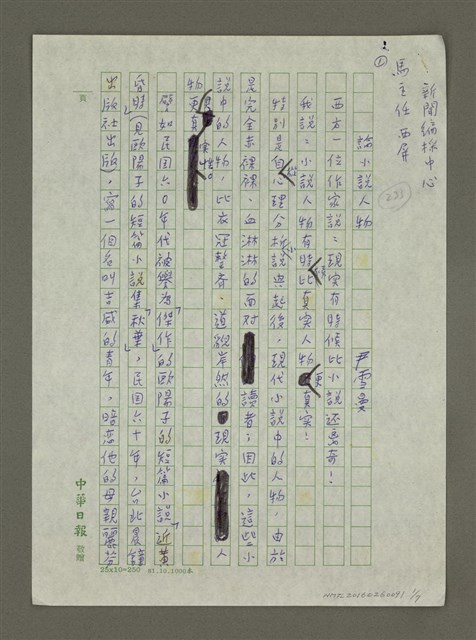 新聞編採中心
馬主任西屏
①
論小說人物
尹雪曼
西方一位作家說：現實有時候比小說還离奇！
我說：小說人物有時候比真實人物更真實！
特別是自從心理分析小說興起後，現代小說中的人物，由於
是完全赤裸裸、血淋淋的面對讀者；因此，這些小
說中的人物，比衣冠整齊、道貌岸然的現實人
物更具真實性。
譬如民国六0年代被譽為「傑作」的歐陽子的短篇小說「近黃
昏時」（見歐陽子的短篇小說集「秋葉」，民国六十年，台北晨鐘
出版社出版），寫一個名叫吉威的青年，暗恋他的母親麗芬
頁
中華日報 敬贈
25x10=250 61.10.1000本
NMTL20160260091 1/7